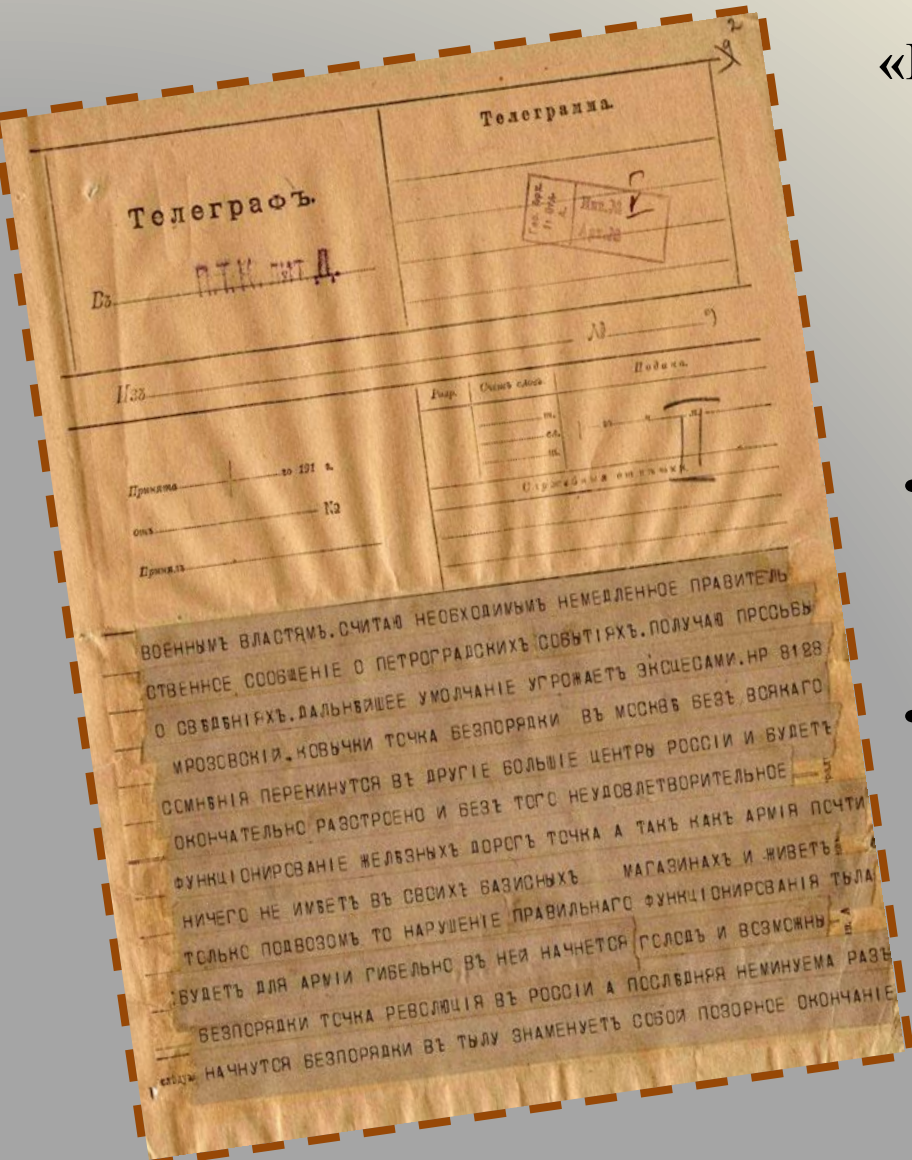 2
«
Телеграфъ.
Телеграмма.
Въ
П.Т.К. лит Д.
Инв.№
Арх.№
Изъ
№
Разр.
Счетъ словъ.
Подача.
II
Принята
го 191 г.
отъ
№
Принялъ
Служебныя отмѣтки.
ВОЕННЫМЪ ВЛАСТЯМЪ.СЧИТАЮ НЕОБХОДИМЫМЪ НЕМЕДЛЕННОЕ ПРАВИТЕЛЬ
СТВЕННОЕ СООБЩЕНІЕ О ПЕТРОГРАДСКИХЪ СОБЫТІЯХЪ.ПОЛУЧАЮ ПРОСЬБЫ
О СВѢДѢНІЯХЪ.ДАЛЬНѢЙШЕЕ УМОЛЧАНІЕ УГРОЖАЕТЪ ЭКСЦЕСАМИ.НР 8128
МРОЗОВСКІЙ.КОВЫЧКИ ТОЧКА БЕЗПОРЯДКИ ВЪ МОСКВѢ БЕЗЪ ВСЯКАГО
СОМНѢНІЯ ПЕРЕКИНУТСЯ ВЪ ДРУГІЕ БОЛЬШІЕ ЦЕНТРЫ РОССІИ И БУДЕТЪ
ОКОНЧАТЕЛЬНО РАЗСТРОЕНО И БЕЗЪ ТОГО НЕУДОВЛЕТВОРИТЕЛЬНОЕ
ФУНКЦІОНИРОВАНІЕ ЖЕЛѢЗНЫХЪ ДОРОГЪ ТОЧКА А ТАКЪ КАКЪ АРМІЯ ПОЧТИ
НИЧЕГО НЕ ИМѢЕТЪ ВЪ СВОИХЪ БАЗИСНЫХЪ МАГАЗИНАХЪ И ЖИВЕТЪ
ТОЛЬКО ПОДВОЗОМЪ ТО НАРУШЕНІЕ ПРАВИЛЬНАГО ФУНКЦІОНИРОВАНІЯ ТЫЛА
БУДЕТЪ ДЛЯ АРМІИ ГИБЕЛЬНО ВЪ НЕЙ НАЧНЕТСЯ ГОЛОДЪ И ВОЗМОЖНЫ
БЕЗПОРЯДКИ ТОЧКА РЕВОЛЮЦІЯ ВЪ РОССІИ А ПОСЛѢДНЯЯ НЕМИНУЕМА РАЗЪ
НАЧНУТСЯ БЕЗПОРЯДКИ ВЪ ТЫЛУ ЗНАМЕНУЕТЪ СОБОЙ ПОЗОРНОЕ ОКОНЧАНІЕ